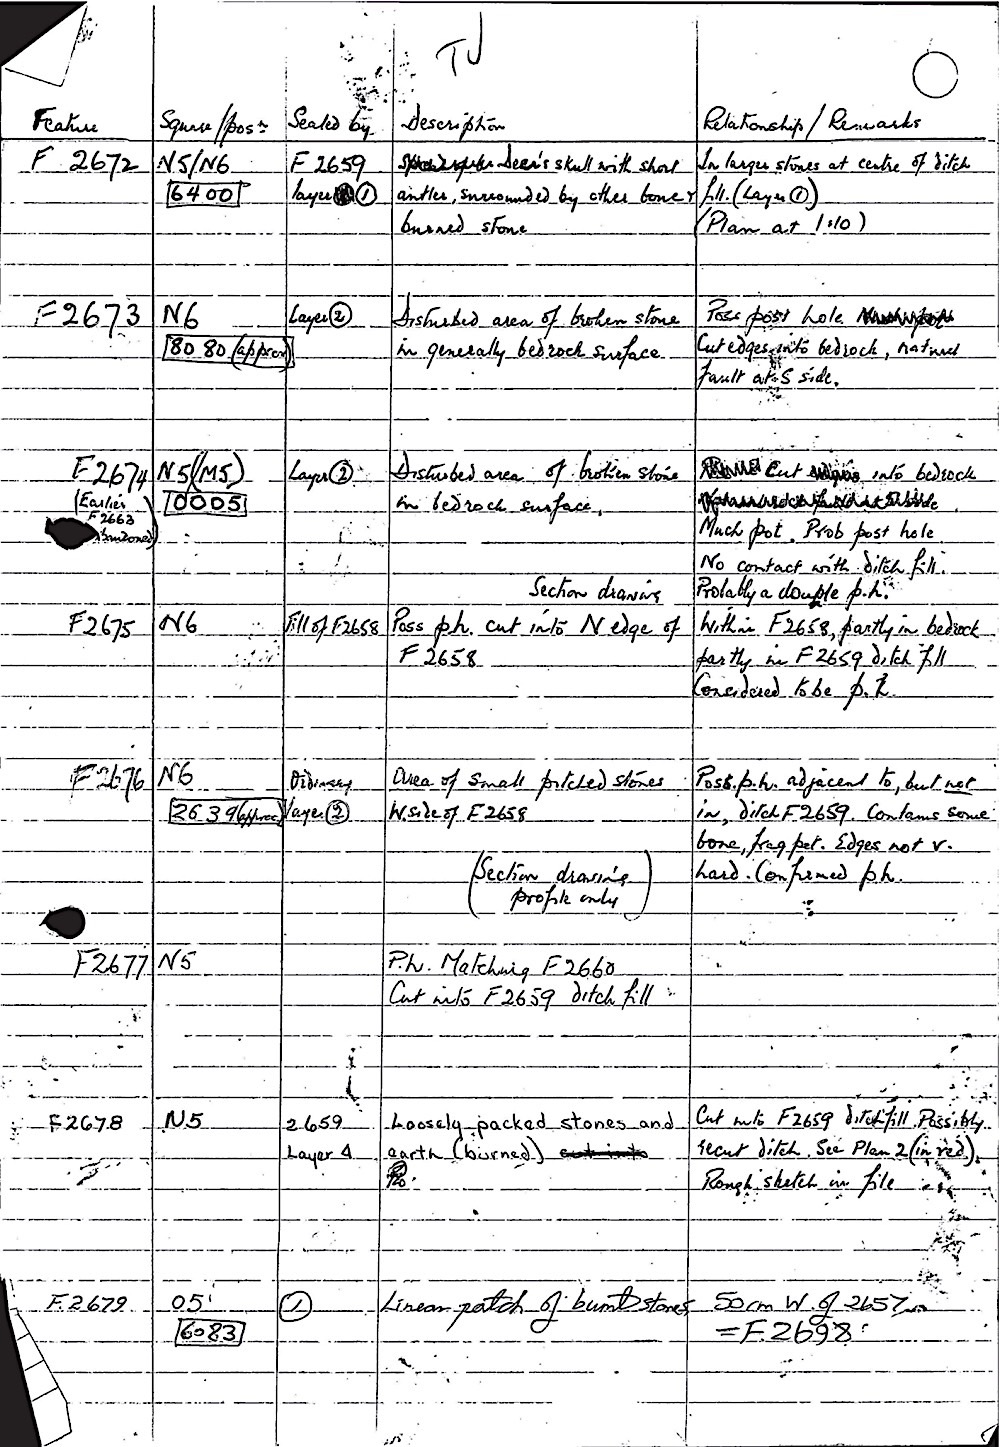 TJ
Feature Square/posn Sealed by Description Relationship/Remarks
F 2672 N5/N6 F 2659 Deer's skull with short In larger stones at centre of ditch
6400 layer ① antler, surrounded by other bone + fill. (Layer ①)
burned stone (Plan at 1:10)
F2673 N6 Layer ② Disturbed area of broken stone Poss post hole
80 80 (approx) in generally bedrock surface Cut edges into bedrock, natural
fault at S side.
F2674 N5/(M5) Layer ② Disturbed area of broken stone Cut into bedrock
(Earlier 0005 in bedrock surface.
F2663 Much pot. Prob post hole.
abandoned) No contact with ditch fill.
Section drawing Probably a double p.h.
F2675 N6 Fill of F2658 Poss p.h. cut into N edge of Within F2658, partly in bedrock
F2658 partly in F2659 ditch fill
Considered to be p.h.
F2676 N6 Ordinary Area of small pitched stones Poss. p.h. adjacent to, but not
26 39 (approx) layer ② W. side of F2658 in, ditch F2659. Contains some
bone, frag pot. Edges not v.
(Section drawing hard. Confirmed p.h.
profile only)
F2677 N5 P.h. Matching F2660
Cut into F2659 ditch fill
F2678 N5 2659 Loosely packed stones and Cut into F2659 ditch fill. Possibly
Layer 4 earth (burned) cut into recut ditch. See Plan 2 (in red).
Rough sketch in file
F2679 05 ① Linear patch of burnt stones 50cm W. of 2657
6083 = F2698